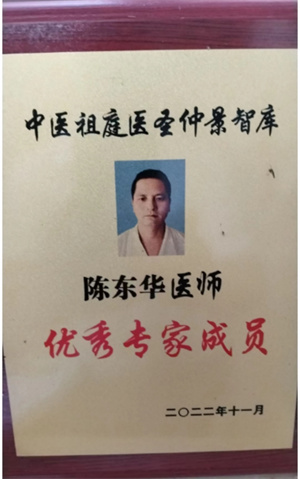 中医祖庭医圣仲景智库
陈东华医师
优秀专家成员
二〇二二年十一月